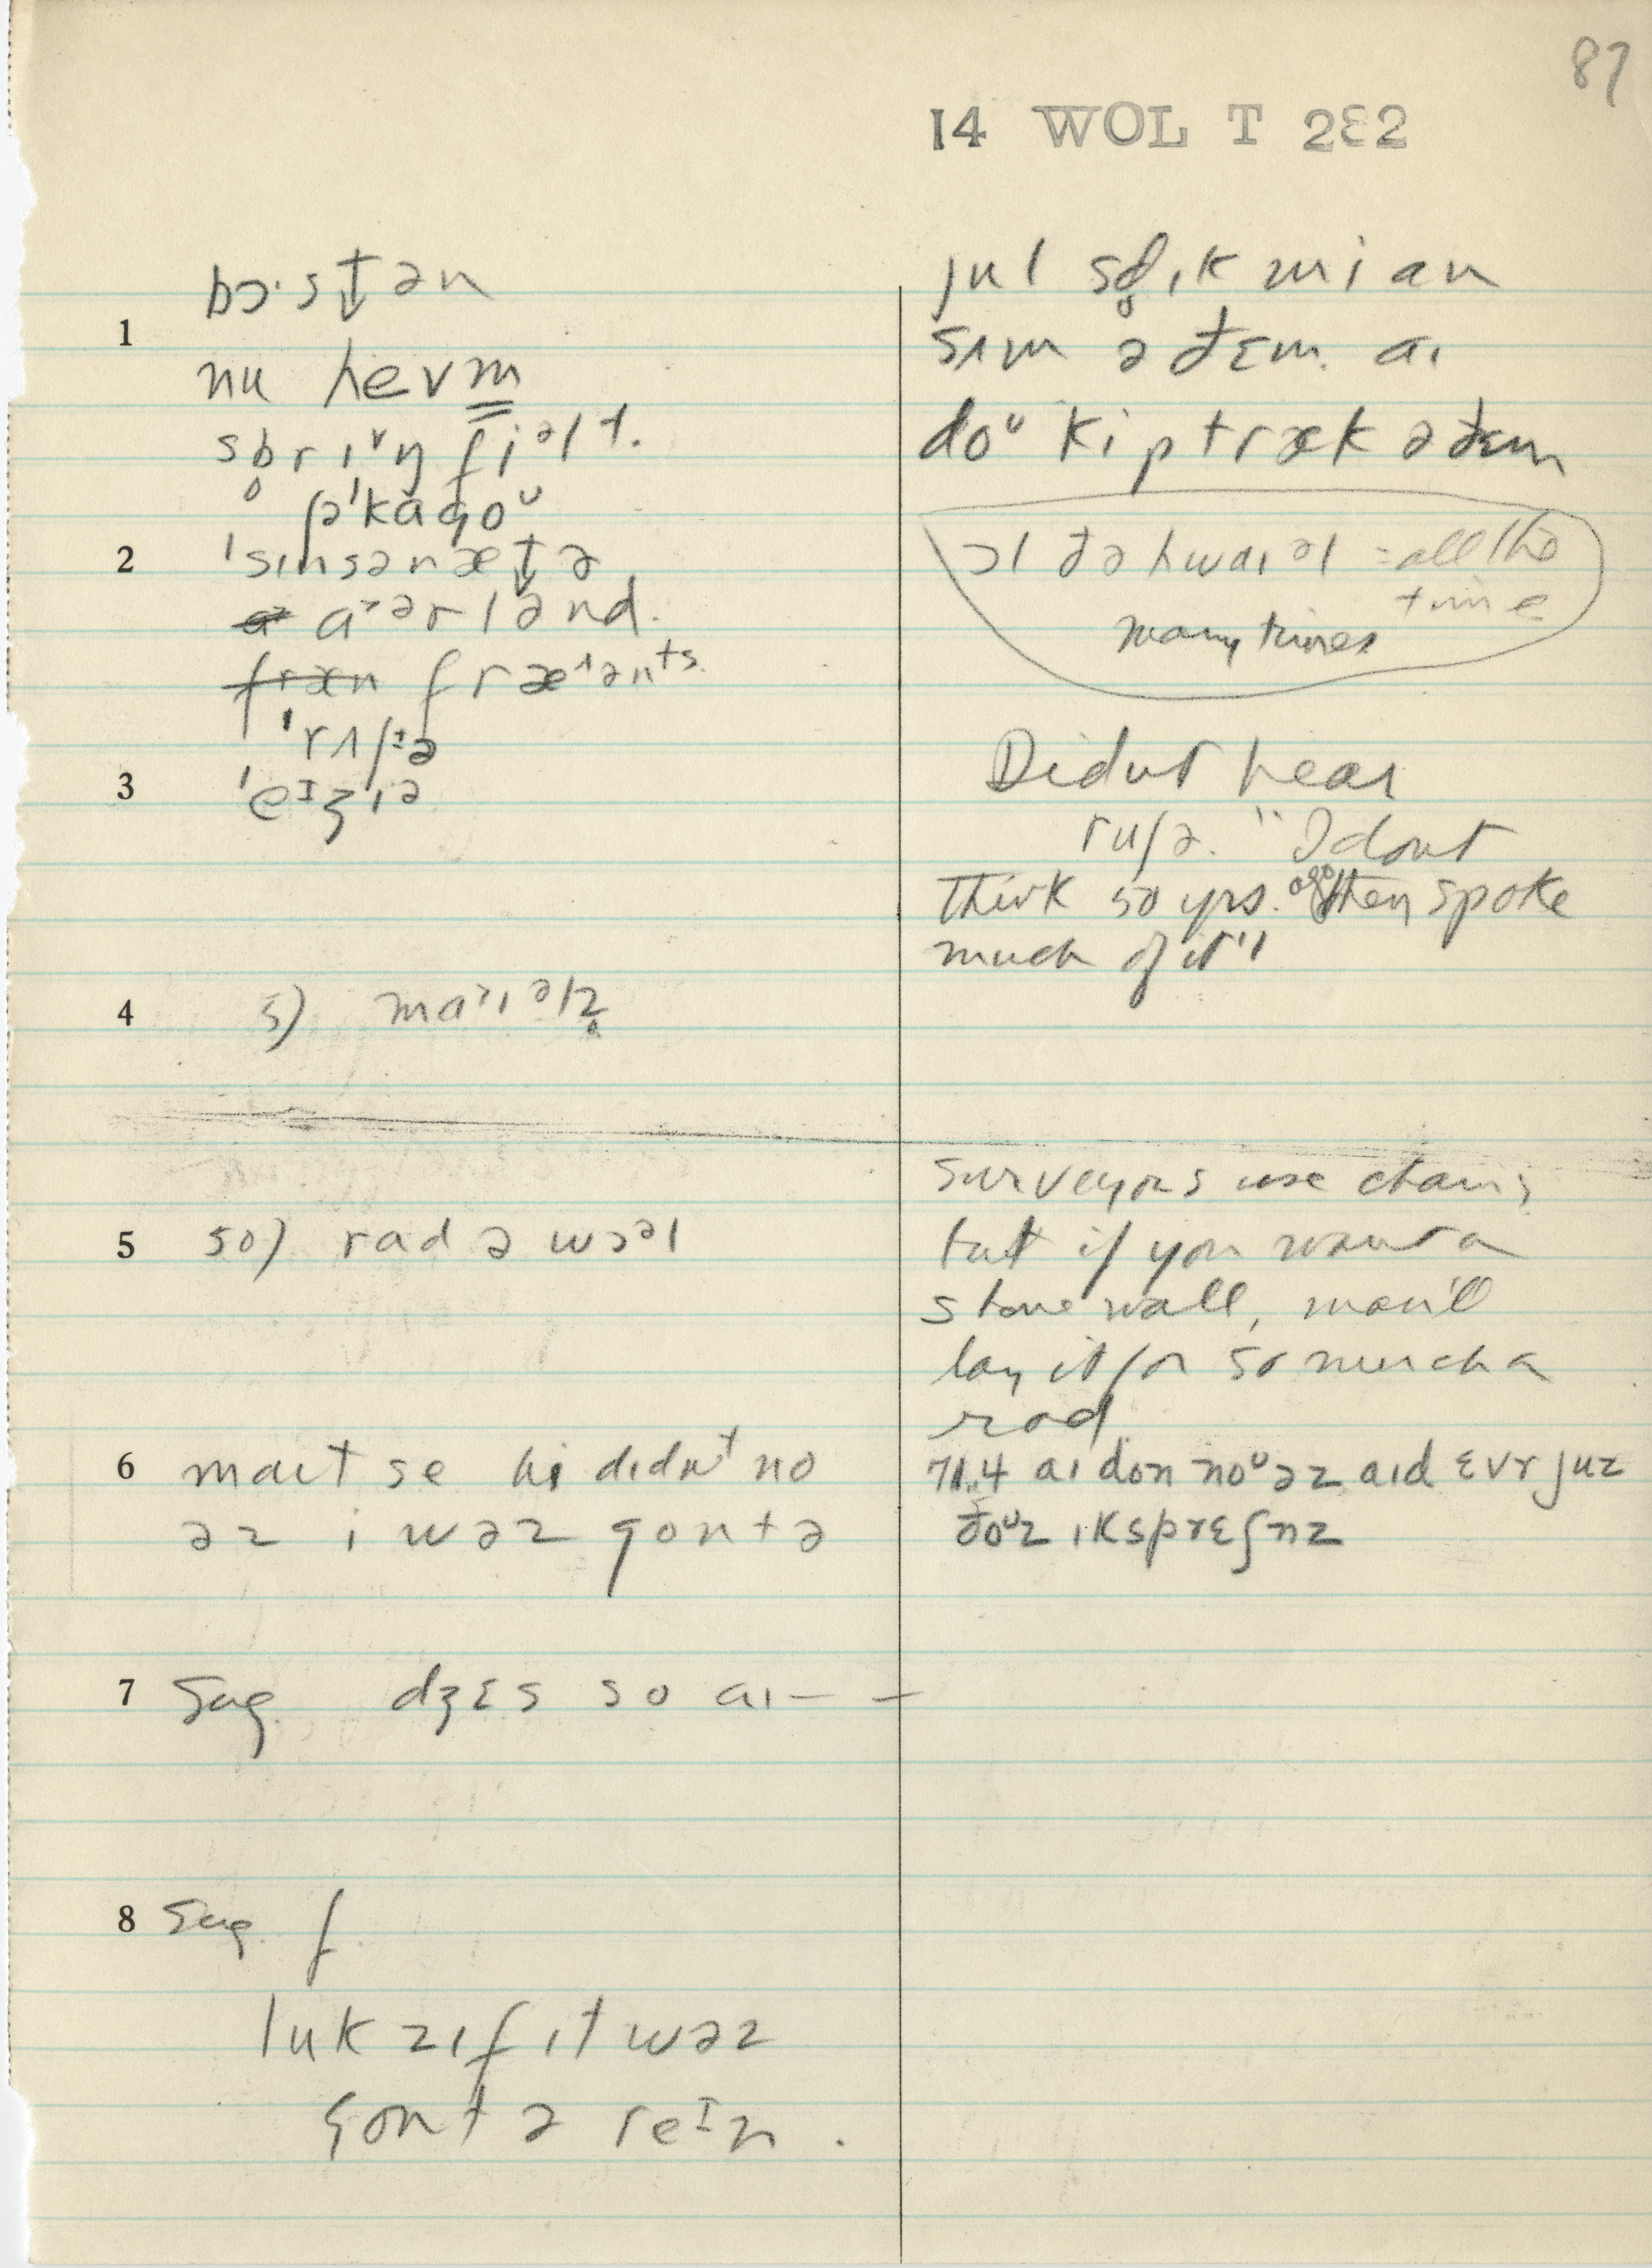 87
14 WOL T 2Ɛ2
bɔ·st̬ən
1
nu hevm̳
sb̥rɪ˅ŋ fiᵊlt.
ʃə'kɑgoᵁ
2 'sɪnsənæt̬ə
a˃ərlənd.
fræn fræ^ənᵗˢ.
'rʌʃᵻə
3 'eᴵʒɪə
4 5) ma˃ɪᵊlz̥
5 50) rad ə wɔᵊl
6 mait se hi dɪdnᵗ no
əz i wəz gontə
7 Sug. dʒɛs so aɪ — —
8 Sug. f
luk zɪf ɪt wəz
gontə reᴵn.
jul sd̥ɪk mi an
sʌm ə ðɛm. aɪ
doᵁ kip træk ə ðɛm
ɔl ðə hwaɪəl = all the
time
many times
Didn't hear
ruʃə. "I dont
think 50 yrs. ago they spoke
much of it"
Surveyors use chain;
but if you want a
stone wall, man'll
lay it for so much a
rod
71.4 aɪ don noᵁ əz aɪd ɛvr juz
ðoᵁz ɪksprɛʃnz